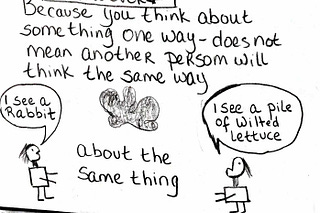 Because you think about
something one way - does not
mean another person will
think the same way
I see a
Rabbit
I see a pile
of wilted
lettuce
about the
same thing